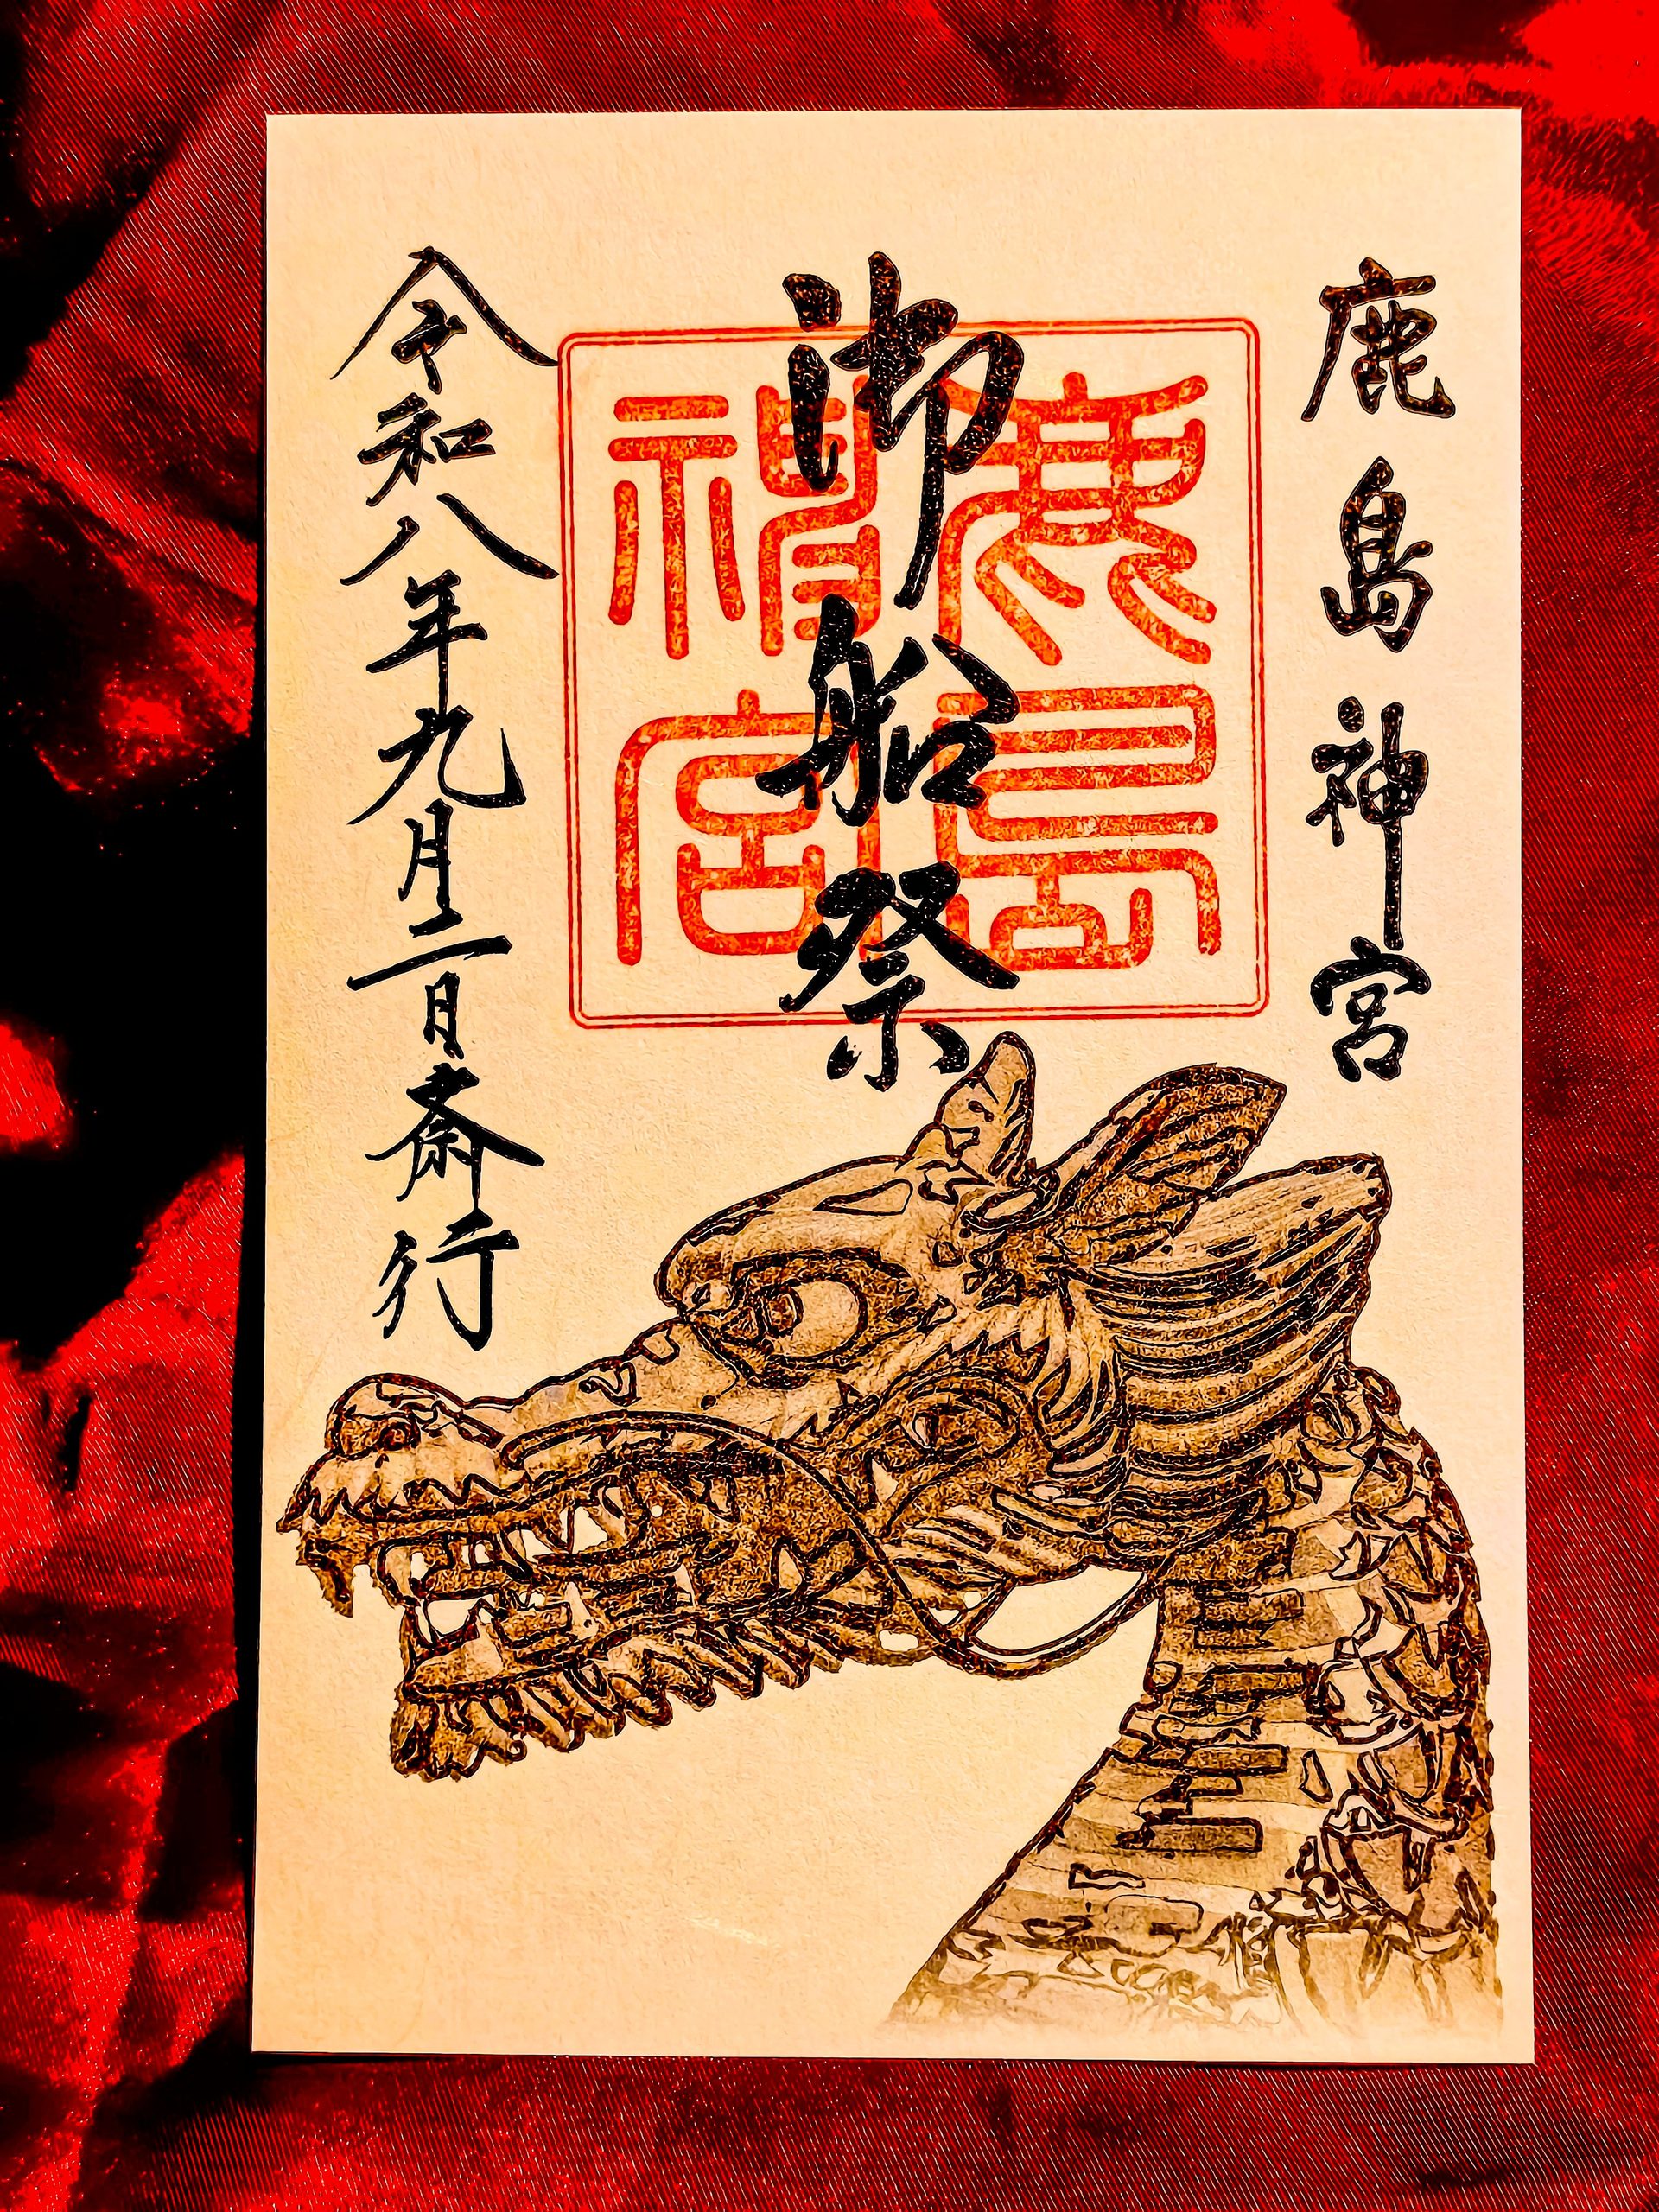 鹿島神宮
御船祭
鹿島神宮
令和八年九月二日斎行